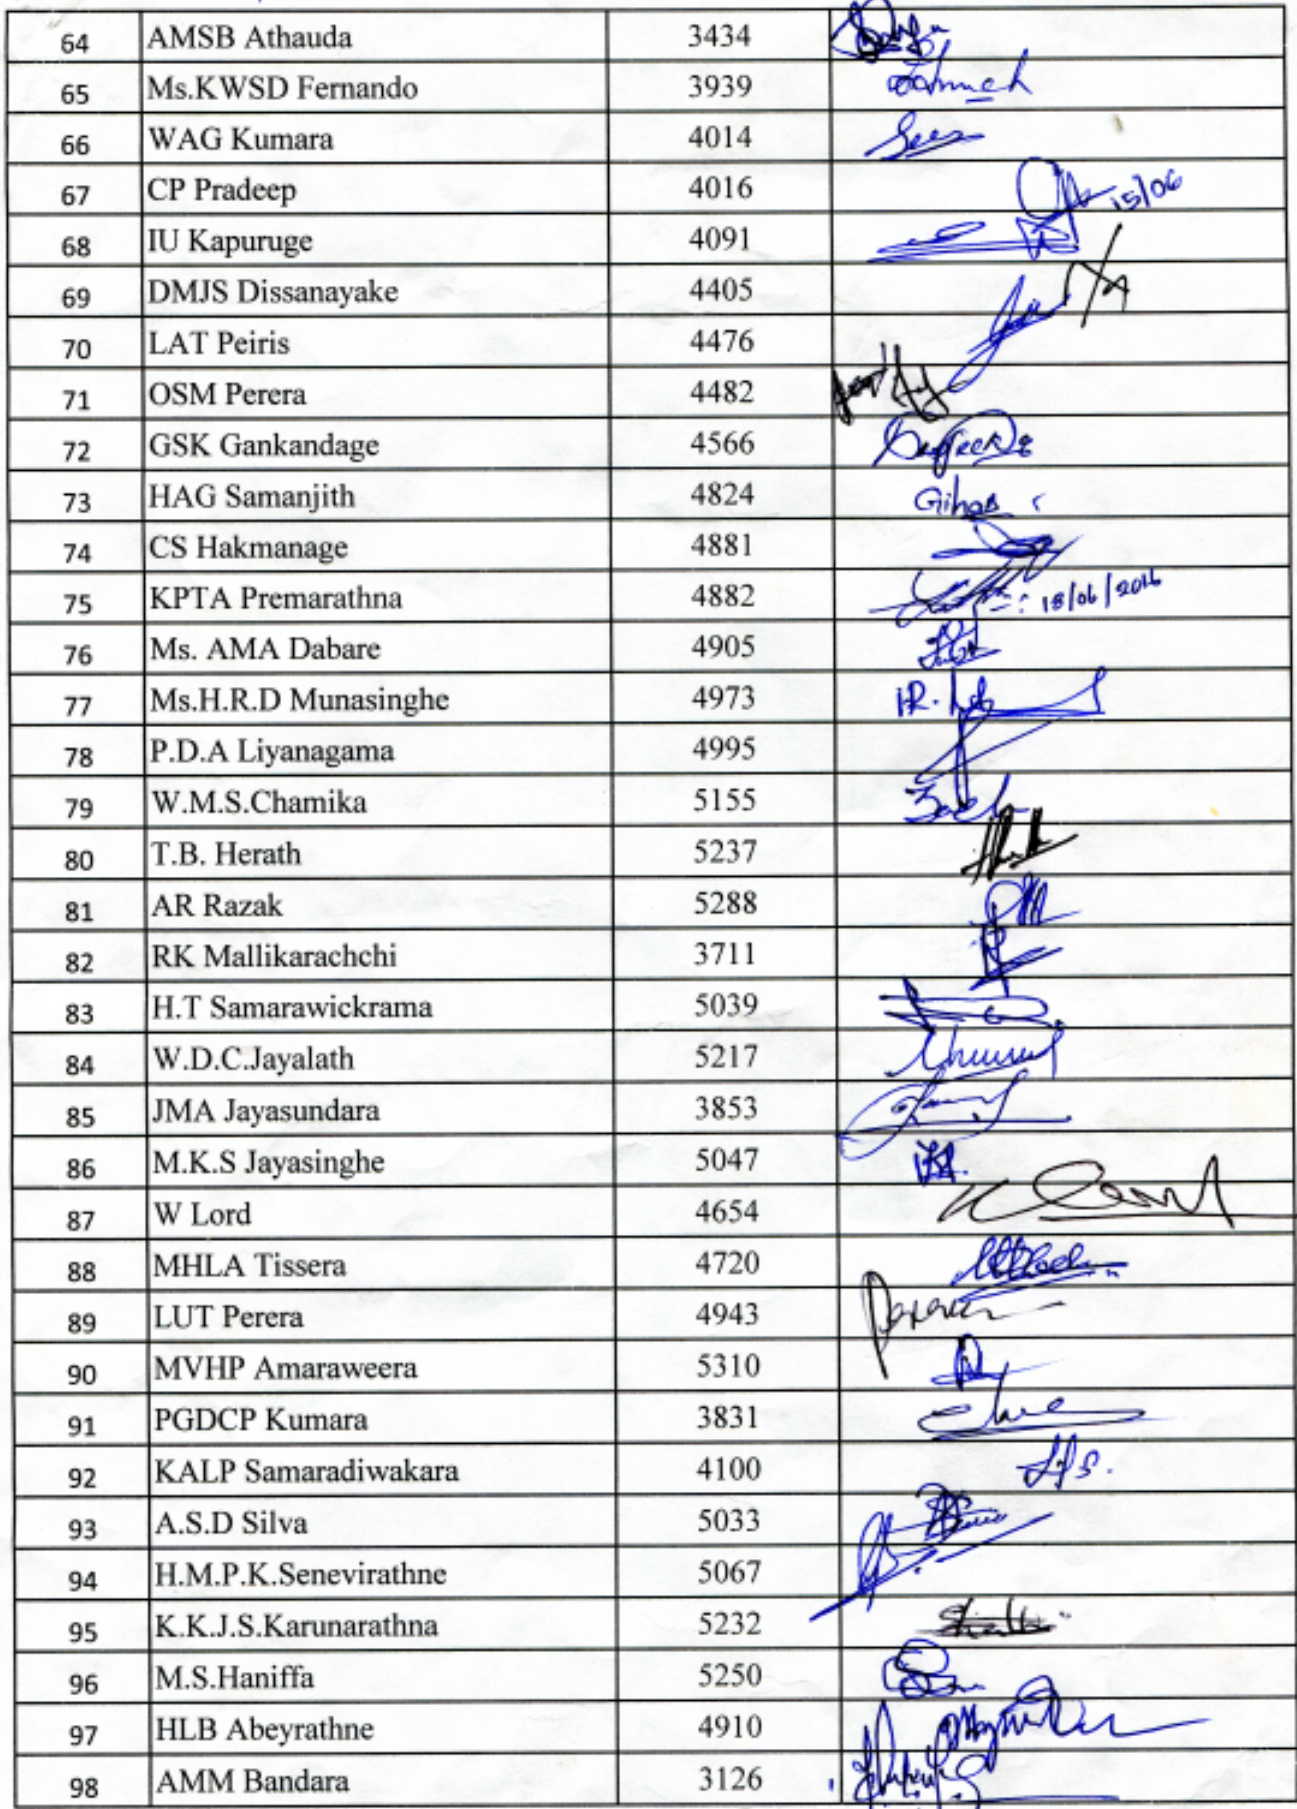 64 AMSB Athauda 3434
65 Ms.KWSD Fernando 3939
66 WAG Kumara 4014
67 CP Pradeep 4016 15/06
68 IU Kapuruge 4091
69 DMJS Dissanayake 4405
70 LAT Peiris 4476
71 OSM Perera 4482
72 GSK Gankandage 4566
73 HAG Samanjith 4824 Gihan
74 CS Hakmanage 4881
75 KPTA Premarathna 4882 18/06/2016
76 Ms. AMA Dabare 4905
77 Ms.H.R.D Munasinghe 4973
78 P.D.A Liyanagama 4995
79 W.M.S.Chamika 5155
80 T.B. Herath 5237
81 AR Razak 5288
82 RK Mallikarachchi 3711
83 H.T Samarawickrama 5039
84 W.D.C.Jayalath 5217
85 JMA Jayasundara 3853
86 M.K.S Jayasinghe 5047
87 W Lord 4654
88 MHLA Tissera 4720
89 LUT Perera 4943 Perera
90 MVHP Amaraweera 5310
91 PGDCP Kumara 3831
92 KALP Samaradiwakara 4100
93 A.S.D Silva 5033
94 H.M.P.K.Senevirathne 5067
95 K.K.J.S.Karunarathna 5232
96 M.S.Haniffa 5250
97 HLB Abeyrathne 4910
98 AMM Bandara 3126